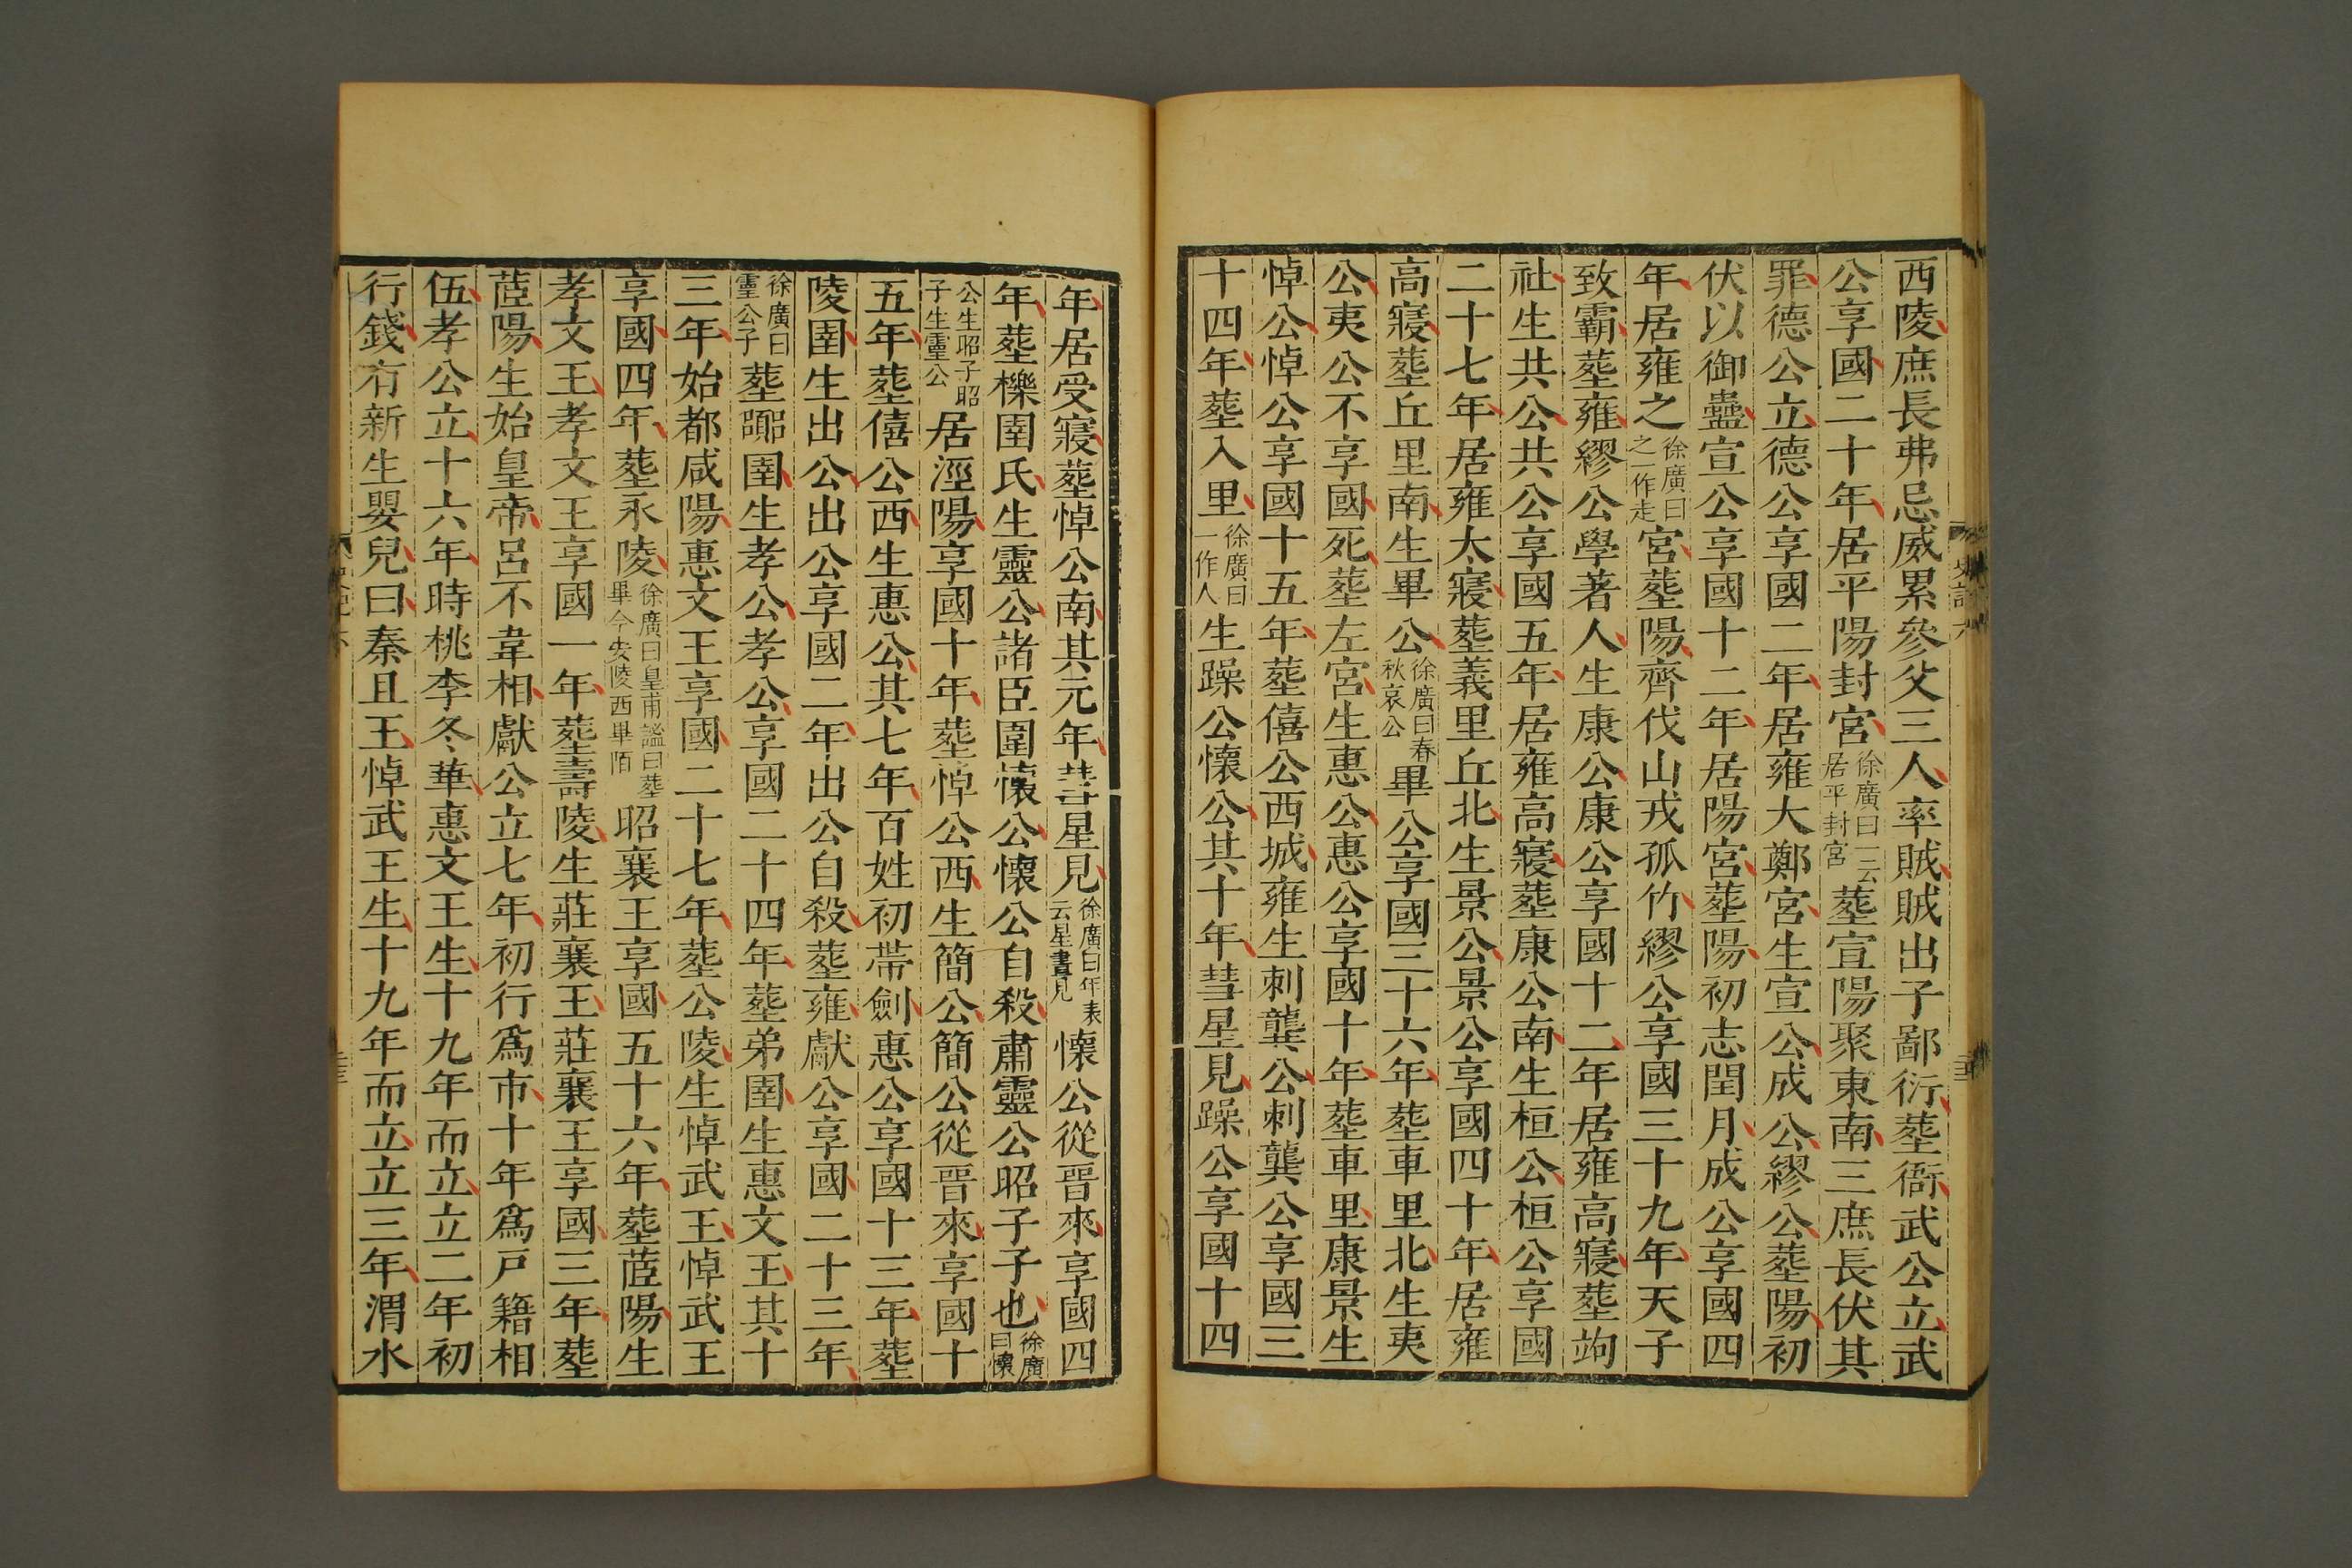 西陵庶長弗忌威累參父三人率賊賊出子鄙衍葬衙武公立武
公享國二十年居平陽封宮徐廣曰一云居平封宮葬宣陽聚東南三庶長伏其
罪德公立德公享國二年居雍大鄭宮生宣公成公繆公葬陽初
伏以御蠱宣公享國十二年居陽宮葬陽初志閏月成公享國四
年居雍之徐廣曰之一作走宮葬陽齊伐山戎孤竹繆公享國三十九年天子
致霸葬雍繆公學著人生康公康公享國十二年居雍高寢葬竘
社生共公共公享國五年居雍高寢葬康公南生桓公桓公享國
二十七年居雍太寢葬義里丘北生景公景公享國四十年居雍
高寢葬丘里南生畢公徐廣曰春秋哀公畢公享國三十六年葬車里北生夷
公夷公不享國死葬左宮生惠公惠公享國十年葬車里康景生
悼公悼公享國十五年葬僖公西城雍生刺龔公刺龔公享國三
十四年葬入里徐廣曰一作人生躁公懷公其十年彗星見躁公享國十四
年居受寢葬悼公南其元年彗星見徐廣曰年表云星晝見懷公從晉來享國四
年葬櫟圉氏生靈公諸臣圍懷公懷公自殺肅靈公昭子子也徐廣曰懷
公生昭子昭子生靈公居涇陽享國十年葬悼公西生簡公簡公從晉來享國十
五年葬僖公西生惠公其七年百姓初帶劍惠公享國十三年葬
陵圉生出公出公享國二年出公自殺葬雍獻公享國二十三年
徐廣曰靈公子葬嚻圉生孝公孝公享國二十四年葬弟圉生惠文王其十
三年始都咸陽惠文王享國二十七年葬公陵生悼武王悼武王
享國四年葬永陵徐廣曰皇甫謐曰葬畢今安陵西畢陌昭襄王享國五十六年葬茝陽生
孝文王孝文王享國一年葬壽陵生莊襄王莊襄王享國三年葬
茝陽生始皇帝呂不韋相獻公立七年初行爲市十年爲戶籍相
伍孝公立十六年時桃李冬華惠文王生十九年而立立二年初
行錢有新生嬰兒曰秦且王悼武王生十九年而立立三年渭水